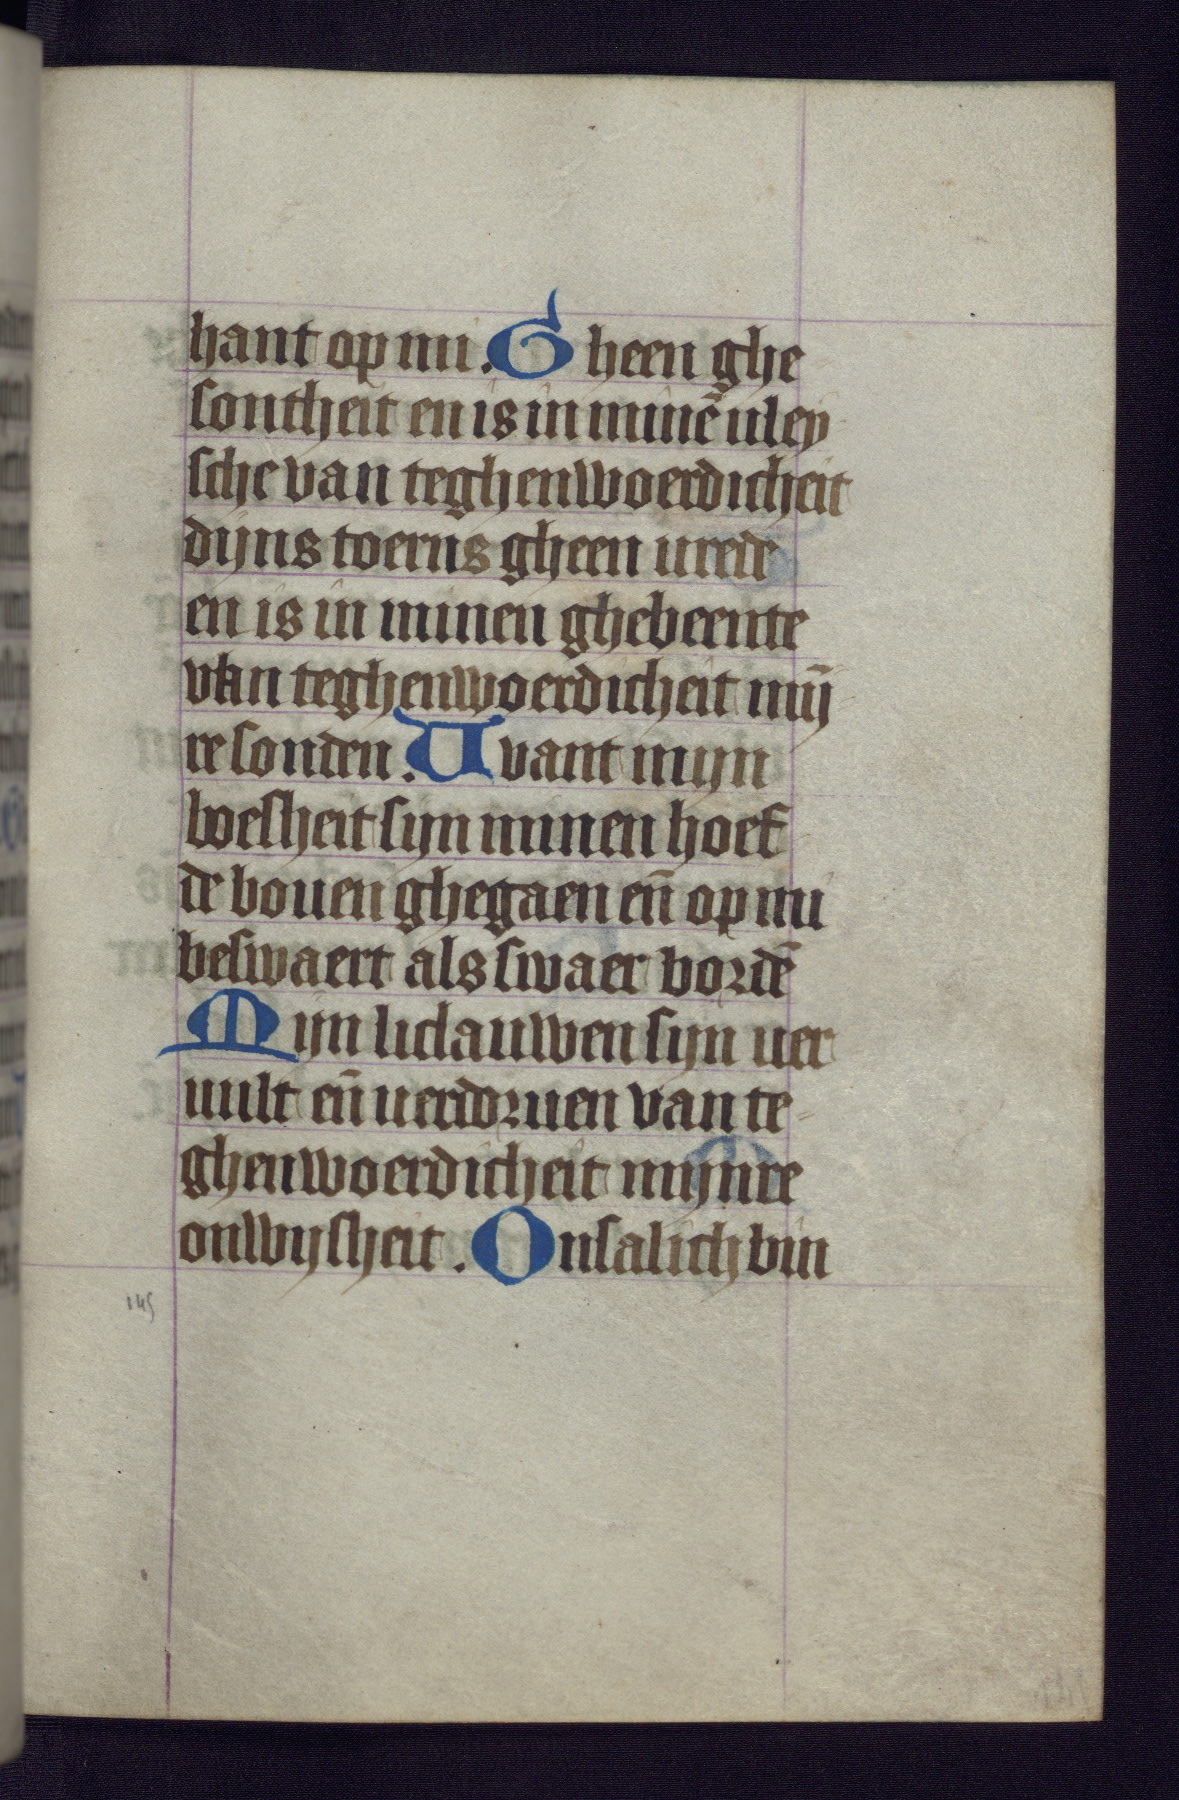 hant op mi. Gheen ghe
sontheit en is in minē uley
sche van teghenwoerdicheit
dijns toerns gheen urede
en is in minen ghebeente
van teghenwoerdicheit mij̄
re sonden. Uvant mijn
boesheit sijn minen hoef
de bouen ghegaen en̄ op mi
beswaert als swaer bordē
Mijn licl auwen sijn uer
uult en̄ uerdoruen van te-
ghenwoerdicheit mijnre
onwijsheit. Onsalich bin
145